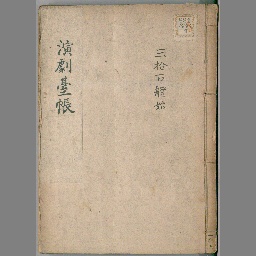 三拾石艠始
演劇臺帳